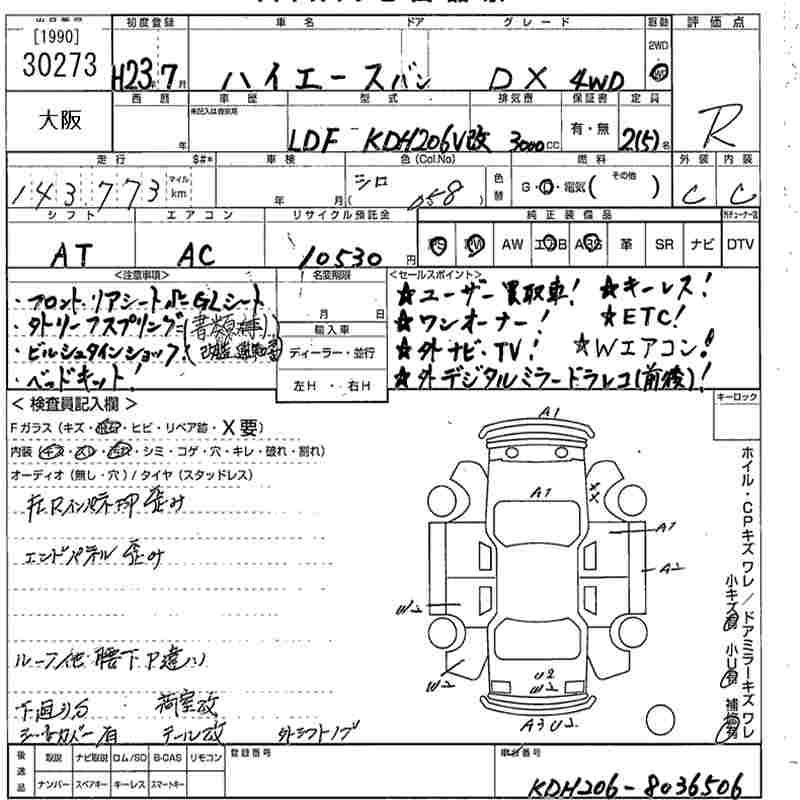 [1990]
30273
大阪
初度登録 車名 ドア グレード 駆動 評価点
H23年7月 ハイエースバン DX 4WD 2WD
R
西暦 車歴 型式 排気量 保証書 定員
年 未記入は自家用 LDF KDH206V改 3000cc 有・無 2(5)名
走行 $#* 車検 色(Col.No) 色替 燃料 外装 内装
143,773 マイル km 年 月 シロ (058) G・D・電気( その他 ) C C
シフト エアコン リサイクル預託金 純正装備品
AT AC 10530円 PS PW AW エアB ABS 革 SR ナビ DTV
<注意事項> 名変期限 <セールスポイント>
・フロント・リアシート GLシート
・外トリーフスプリング(書類
・ビルシュタインショック!
・ベッドキット!
月 日
輸入車
ディーラー・並行
左H・右H
★ユーザー買取車! ★キーレス!
★ワンオーナー! ★ETC!
★外ナビ・TV! ★Wエアコン!
★外デジタルミラードラレコ(前後)!
＜検査員記入欄＞ キーロック
Fガラス(キズ・飛石・ヒビ・リペア跡・X要)
内装(キズ・スレ・汚れ・シミ・コゲ・穴・キレ・破れ・割れ)
オーディオ(無し・穴)/タイヤ(スタッドレス)
歪み
エンドパネル 歪み
ルーフ他 腰下P違い
下廻りサ 荷室改
シートカバー有 テール改 外シフトノブ
A1
A1
XX
A1
A2
W2
W2
U2
W2
A3 U2
ホイル・CPキズ ワレ/ドアミラーキズ ワレ
小キズ有 小U有 補修有
後送品 取説 ナビ取説 ロム/SD B-CAS リモコン 登録番号 車台番号
ナンバー スペアキー キーレス スマートキー KDH206-8036506